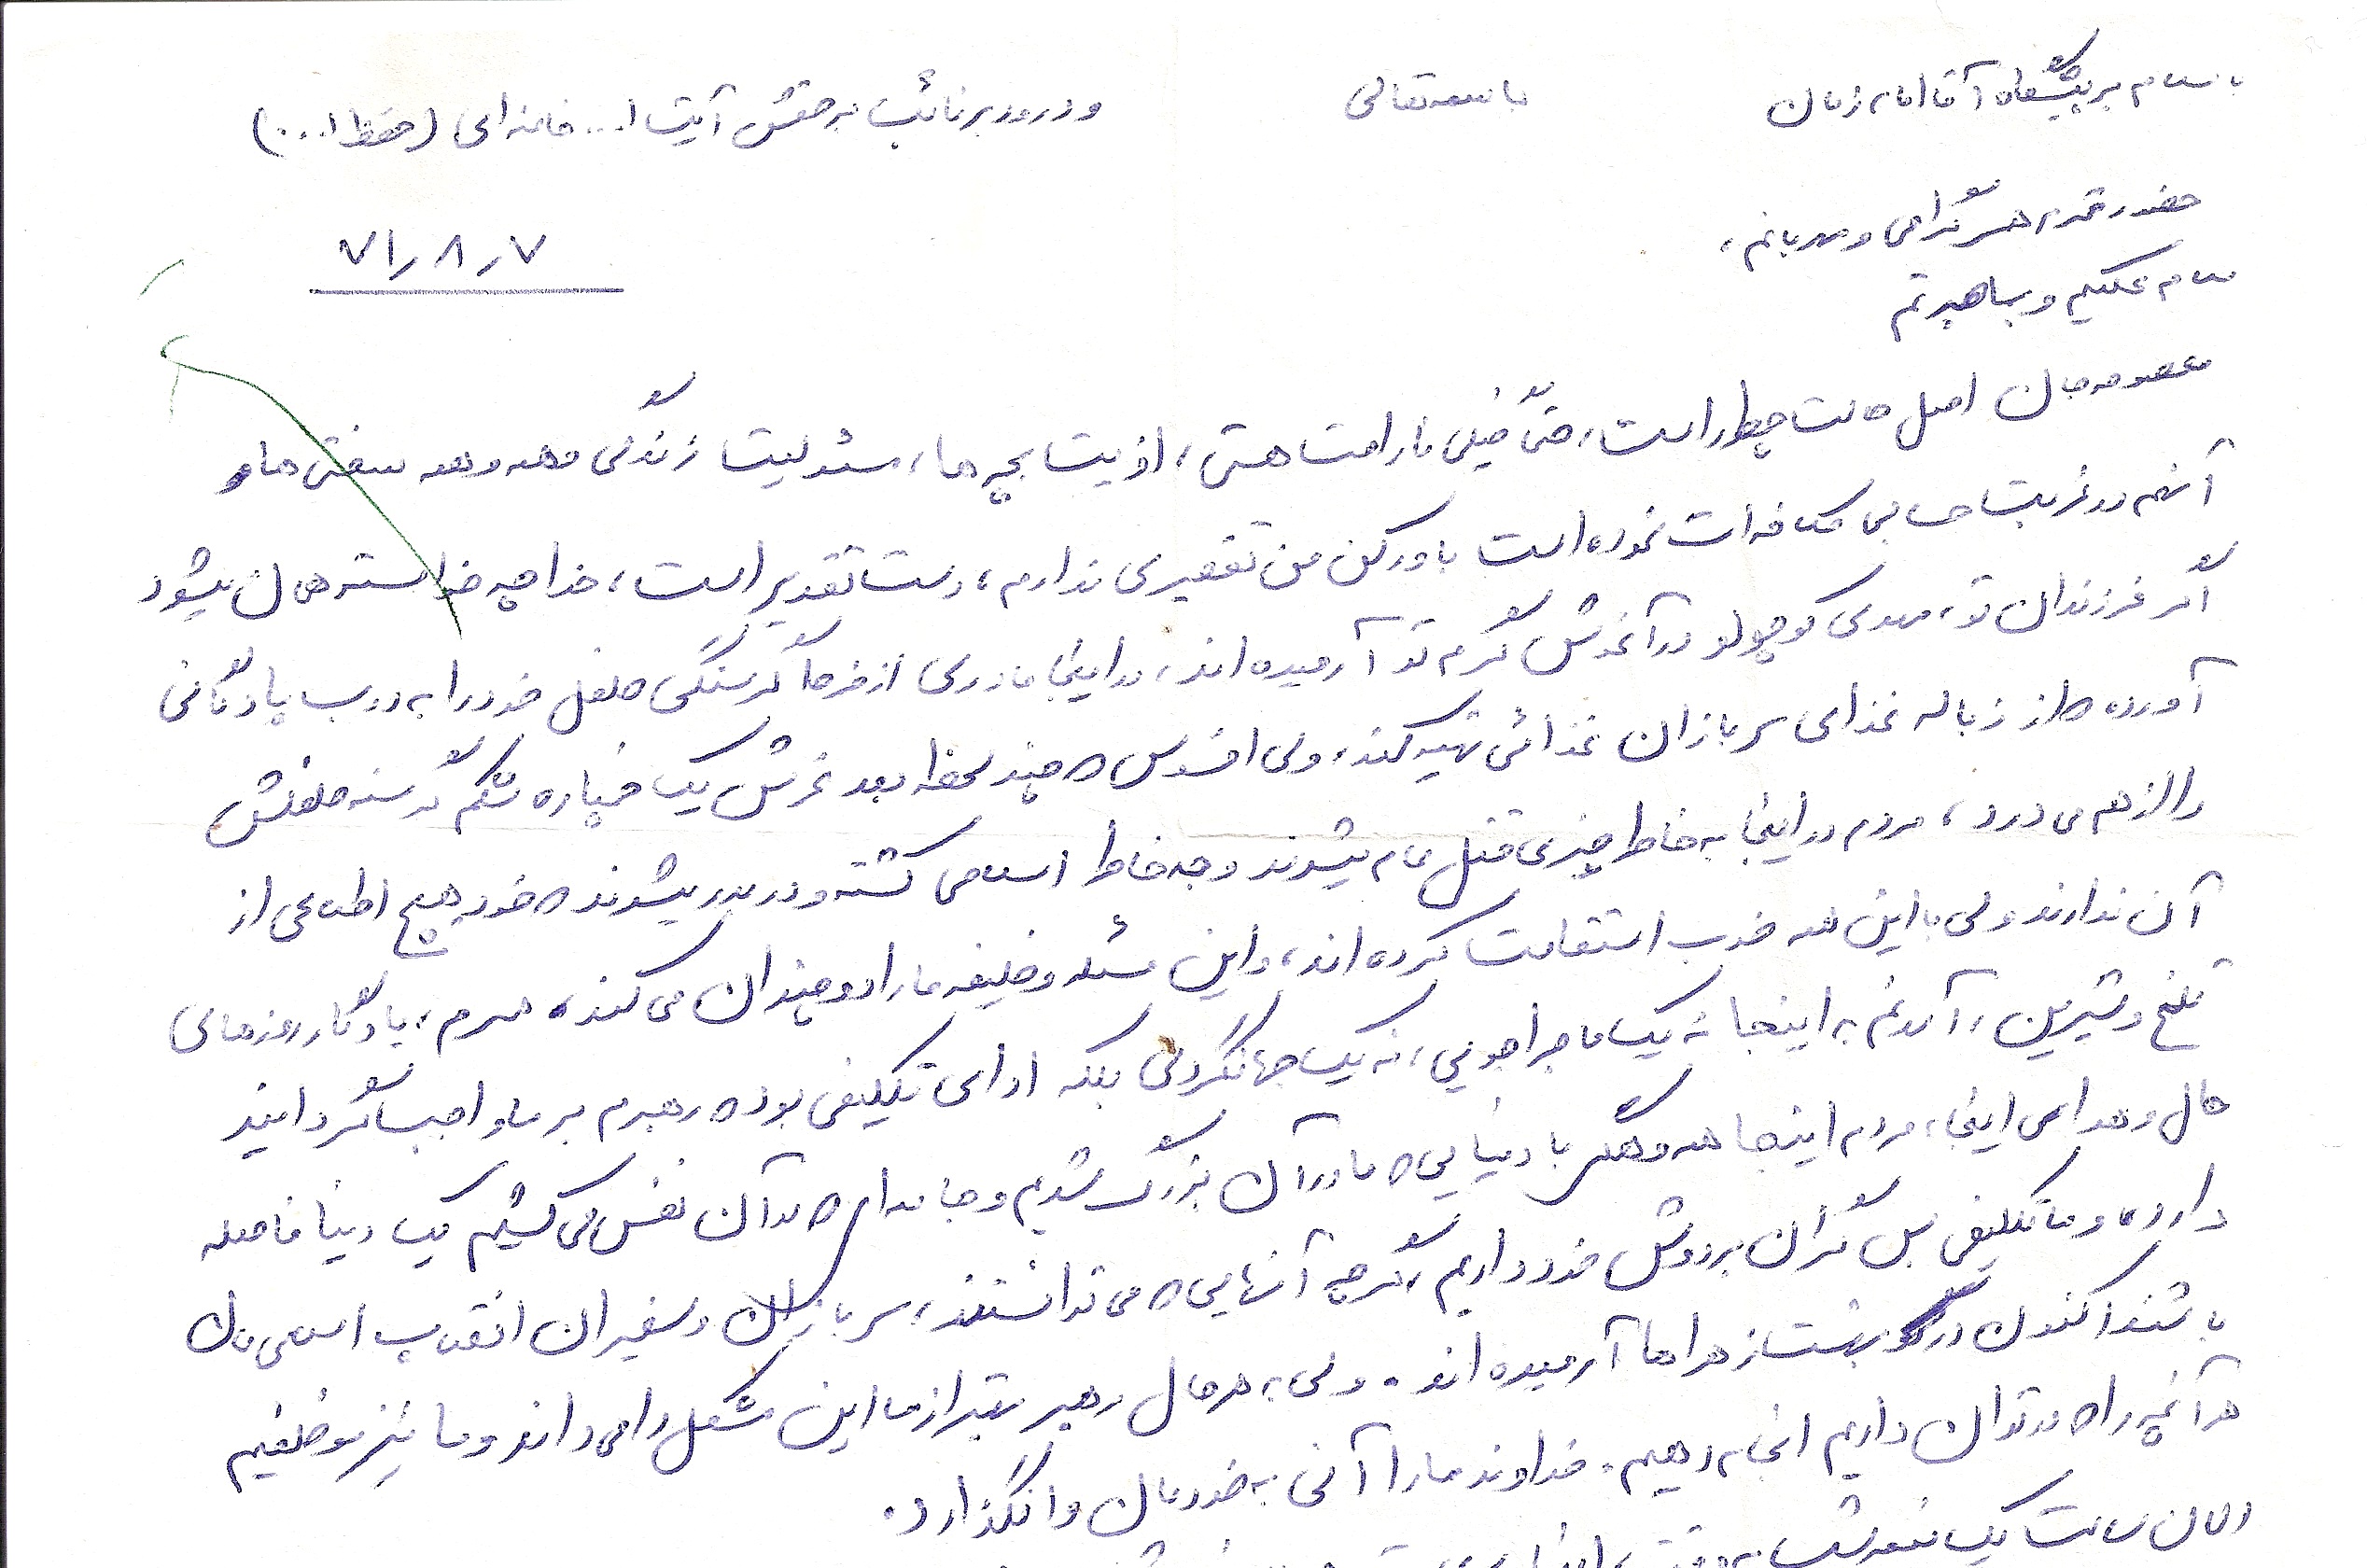 با سلام بر پیشگاه آقا امام زمان    باسمه تعالی    و درود بر نائب برحقش آیت ا... خامنه ای (حفظ ا...)
حضور محترم همسر گرامی و مهربانم،
۷۱٫۸٫۷
سلام علیکم و بماصبرتم
معصومه جان اصل حالت چطور است، حتماً خیلی ناراحت هستی، اذیت بچه ها، مسئولیت زندگی و همه و همه سختی ها و
آنهم در غربت حسابی کلافه ات نموده است باور کن من تقصیری ندارم، دست تقدیر است، خدا چه خواسته همان میشود
اگر فرزندان تو، مهدی کوچولو در آغوش گرم تو آرمیده اند، در اینجا مادری از فرط گرسنگی طفل خود را به درب پادگانی
آورده که از زباله غذای سربازان غذائی تهیه کند، ولی افسوس که چند لحظه بعد غرش یک خمپاره شکم گرسنه طفلش
را از هم می درد، مردم در اینجا به خاطر چیزی قتل عام میشوند و به خاطر اسلامی کشته و دربدر میشوند که خود هیچ اطلاعی از
آن ندارند ولی با این همه خوب استقامت کرده اند، و این مسئله وظیفه ما را دوچندان می کند، همسرم، یادگار روزهای
تلخ و شیرین، آمدنم به اینجا نه یک ماجراجویی، نه یک جهانگردی بلکه ادای تکلیفی بود که رهبرم بر ما واجب گردانید
حال و هوای اینجا، مردم اینجا همه و همه با دنیایی که ما در آن بزرگ شدیم و جامعه ای که در آن نفس می کشیم یک دنیا فاصله
دارد، و ما تکلیفی بس گران بر دوش خود داریم، گرچه آنهایی که می توانستند، سربازان و سفیران انقلاب اسلامی مان
باشند اکنون در بهشت زهراها آرمیده اند. ولی به هر حال رهبر بهتر از ما این مشکل را می داند و ما نیز موظفیم
هر آنچه را که در توان داریم انجام دهیم. خداوند ما را آنی به خودمان وانگذارد.
الان ساعت یک نیمه شب